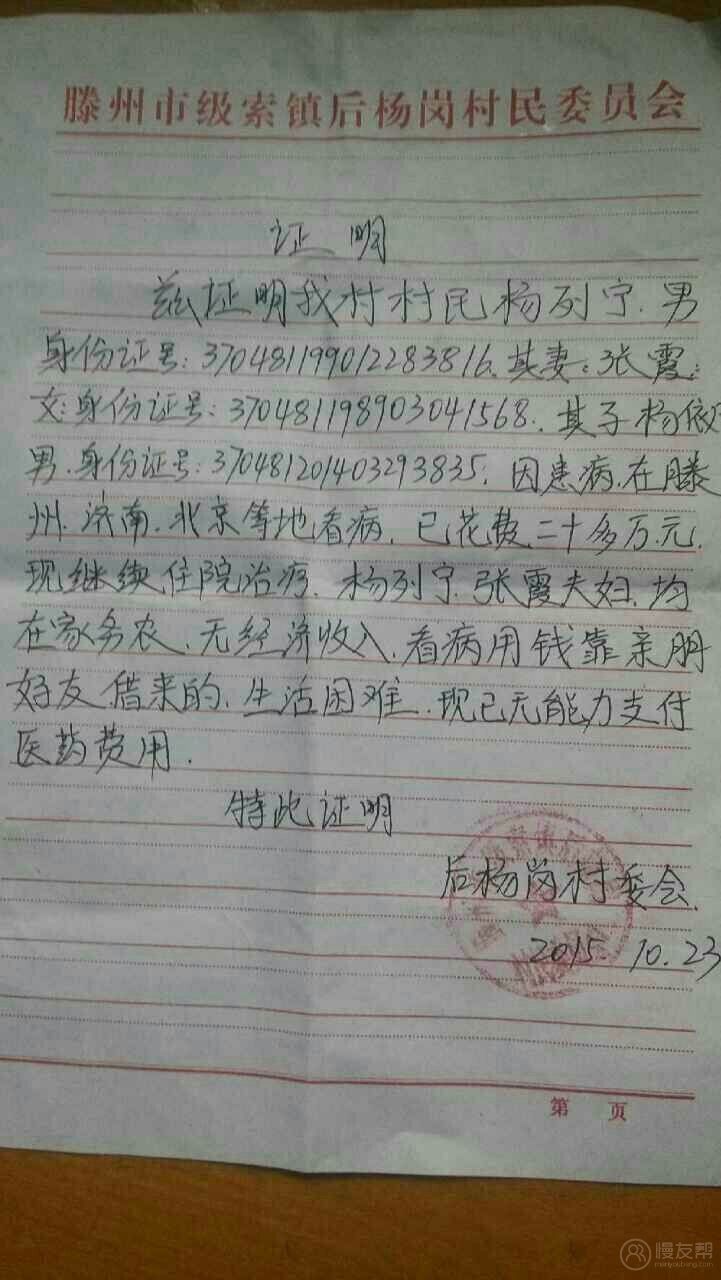 滕州市级索镇后杨岗村民委员会
证明
兹证明我村村民杨列宁.男
身份证号:370481199012283816.其妻:张霞;
女:身份证号:370481198903041568.其子杨依
男.身份证号:370481201403293835.因患病.在滕
州.济南.北京等地看病.已花费二十多万元.
现继续住院治疗.杨列宁.张霞夫妇.均
在家务农.无经济收入.看病用钱靠亲朋
好友借来的.生活困难.现已无能力支付
医药费用.
特此证明
后杨岗村委会.
2015.10.23
第 页
慢友帮
manyoubang.com